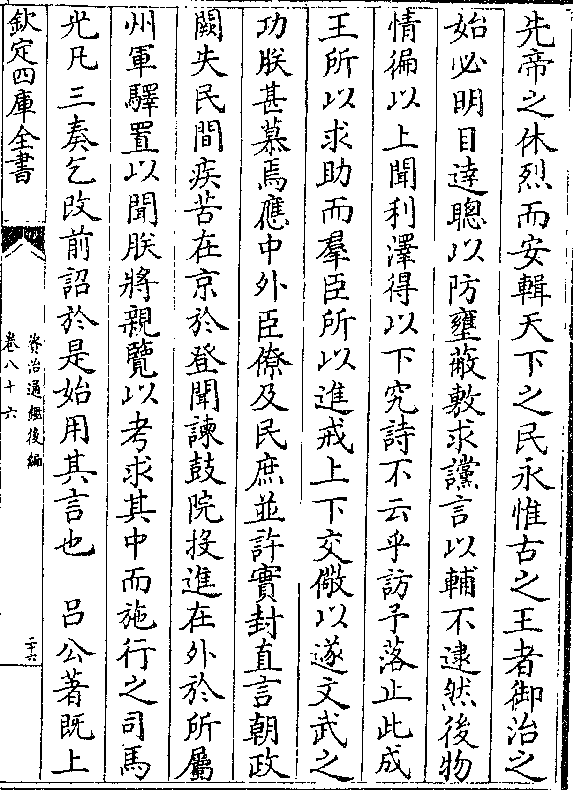 先帝之休烈而安輯天下之民永惟古之王者御治之
始必明目達聰以防壅蔽敷求讜言以輔不逮然後物
情徧以上聞利澤得以下究詩不云乎訪予落止此成
王所以求助而羣臣所以進戒上下交儆以遂文武之
功朕甚慕焉應中外臣僚及民庶並許實封直言朝政
闕失民間疾苦在京於登聞諫鼓院投進在外於所屬
州軍驛置以聞朕將親覽以考求其中而施行之司馬
光凡三奏乞改前詔於是始用其言也　呂公著既上
欽定四庫全書
資治通鑑後編
卷八十六
二十六